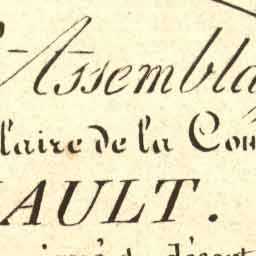 'Assembla
laire de la Com
AULT.